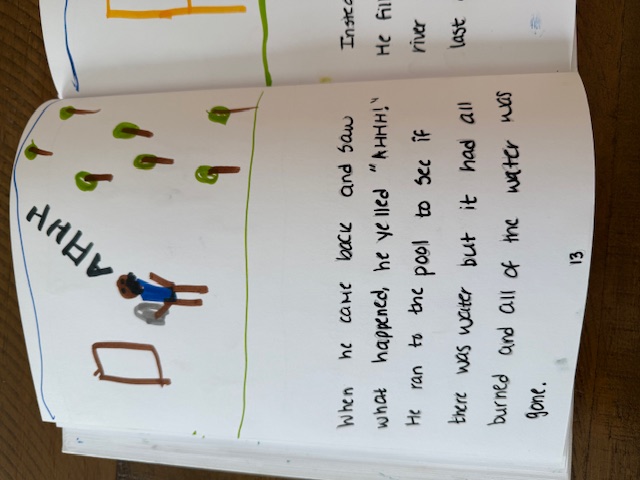 AHHH
When he came back and saw
what happened, he yelled "AHHH!"
He ran to the pool to see if
there was water but it had all
burned and all of the water was
gone.
13
Instea
He fil
river
last